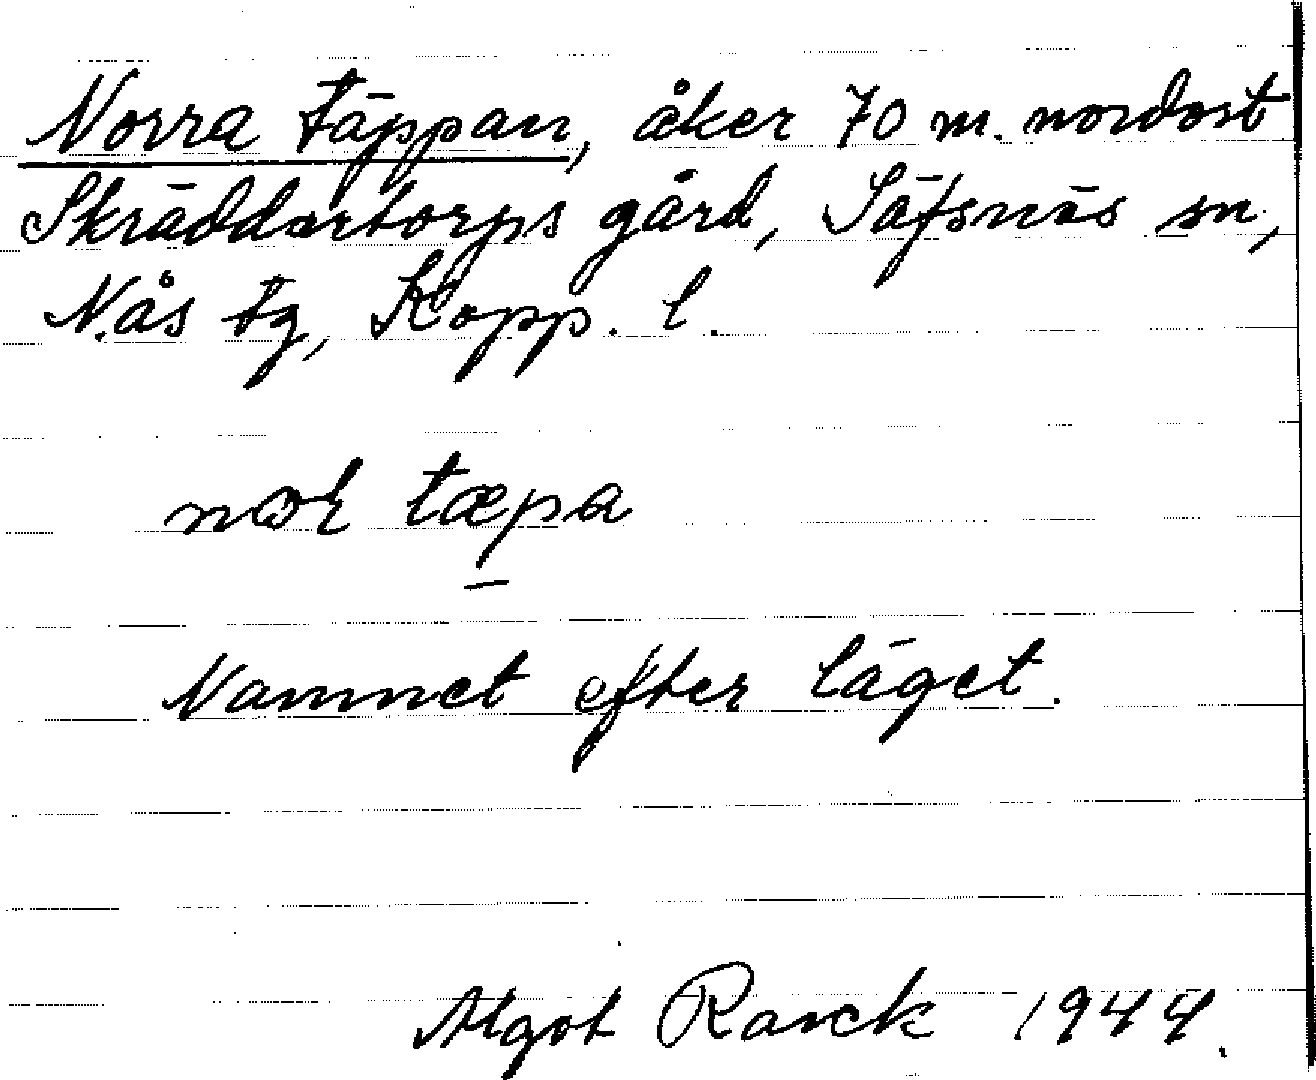 Norra täppan, åker 70 m. nordost
Skräddartorps gård, Säfsnäs sn,
Nås tg, Kopp. l.
tæpa
Namnet efter läget.
Algot Rarck 1944.